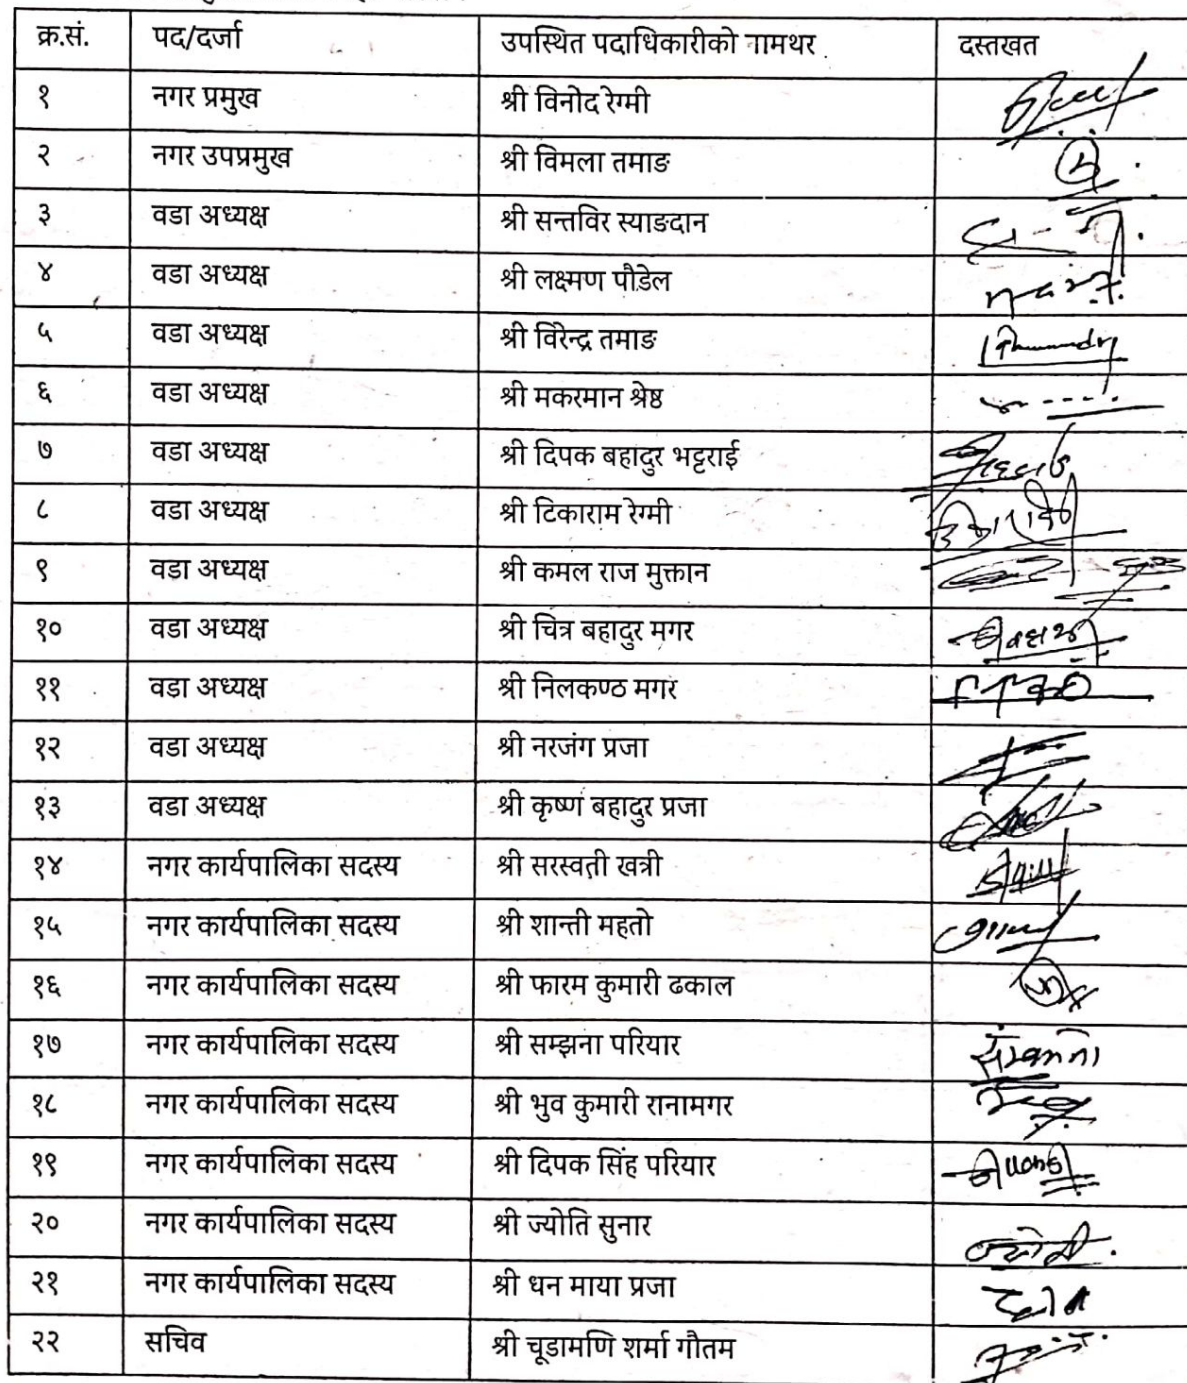 क्र.सं. पद/दर्जा उपस्थित पदाधिकारीको नामथर दस्तखत
१ नगर प्रमुख श्री विनोद रेग्मी
२ नगर उपप्रमुख श्री विमला तमाङ
३ वडा अध्यक्ष श्री सन्तविर स्याङदान
४ वडा अध्यक्ष श्री लक्ष्मण पौडेल
५ वडा अध्यक्ष श्री विरेन्द्र तमाङ
६ वडा अध्यक्ष श्री मकरमान श्रेष्ठ
७ वडा अध्यक्ष श्री दिपक बहादुर भट्टराई
८ वडा अध्यक्ष श्री टिकाराम रेग्मी
९ वडा अध्यक्ष श्री कमल राज मुक्तान
१० वडा अध्यक्ष श्री चित्र बहादुर मगर
११ वडा अध्यक्ष श्री निलकण्ठ मगर
१२ वडा अध्यक्ष श्री नरजंग प्रजा
१३ वडा अध्यक्ष श्री कृष्ण बहादुर प्रजा
१४ नगर कार्यपालिका सदस्य श्री सरस्वती खत्री
१५ नगर कार्यपालिका सदस्य श्री शान्ती महतो
१६ नगर कार्यपालिका सदस्य श्री फारम कुमारी ढकाल
१७ नगर कार्यपालिका सदस्य श्री सम्झना परियार
१८ नगर कार्यपालिका सदस्य श्री भुव कुमारी रानामगर
१९ नगर कार्यपालिका सदस्य श्री दिपक सिंह परियार
२० नगर कार्यपालिका सदस्य श्री ज्योति सुनार
२१ नगर कार्यपालिका सदस्य श्री धन माया प्रजा
२२ सचिव श्री चूडामणि शर्मा गौतम